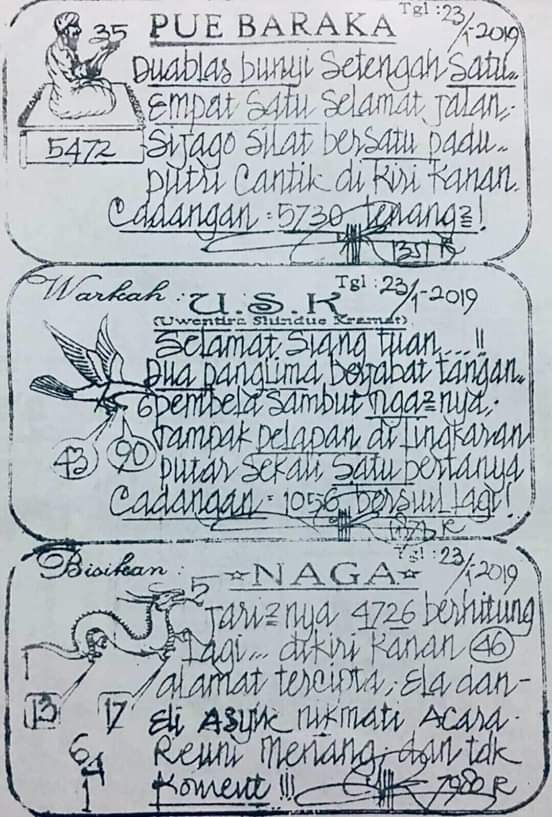 Tgl : 23/1-2019
PUE BARAKA
35
5472
Duablas bunyi Setengah Satu..
Empat Satu Selamat jalan.
Sijago Silat berSatu padu..
putri Cantik di Kiri Kanan.
Cadangan : 5730 tenang2 !
1351 R
Warkah : U.S.K
Tgl : 23/1-2019
(Uwentira Shindue Kramat)
Selamat Siang tuan....!!
Dua panglima berjabat tangan..
6 pembela Sambut nga2nya.
43 90
tampak pelapan di lingkaran
putar Sekali Satu bertanya
Cadangan : 1056 bersiul lagi !
R
Bisikan : ☆NAGA☆
Tgl : 23/1-2019
5
Tari2nya 4726 berhitung
Lagi... dikiri Kanan 46
13 17
alamat tercipta, Ela dan-
Eli Asyik nikmati Acara.
6
4
1
Reuni Menang, dan tdk
Koment !!!
7980 R